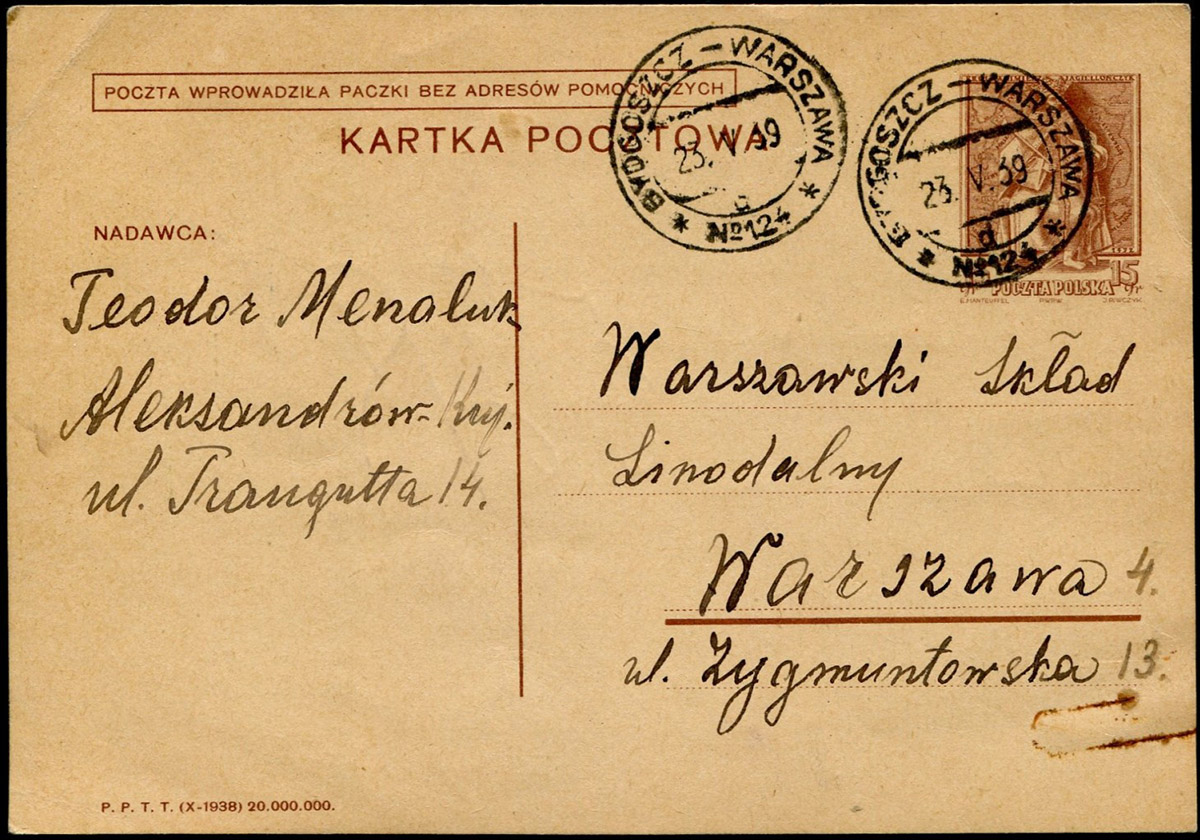 POCZTA WPROWADZIŁA PACZKI BEZ ADRESÓW POMOCNICZYCH
KARTKA POCZTOWA
BYDGOSZCZ – WARSZAWA
23. V. 39
g
* Nº 124 *
BYDGOSZCZ – WARSZAWA
23. V. 39
g
* Nº 124 *
15
gr POCZTA POLSKA gr
NADAWCA:
Teodor Menaluk
Aleksandrów-Kuj.
ul. Traugutta 14.
Warszawski Skład
Linodalny
Warszawa 4.
ul. Zygmuntowska 13.
P. P. T. T. (X-1938) 20.000.000.